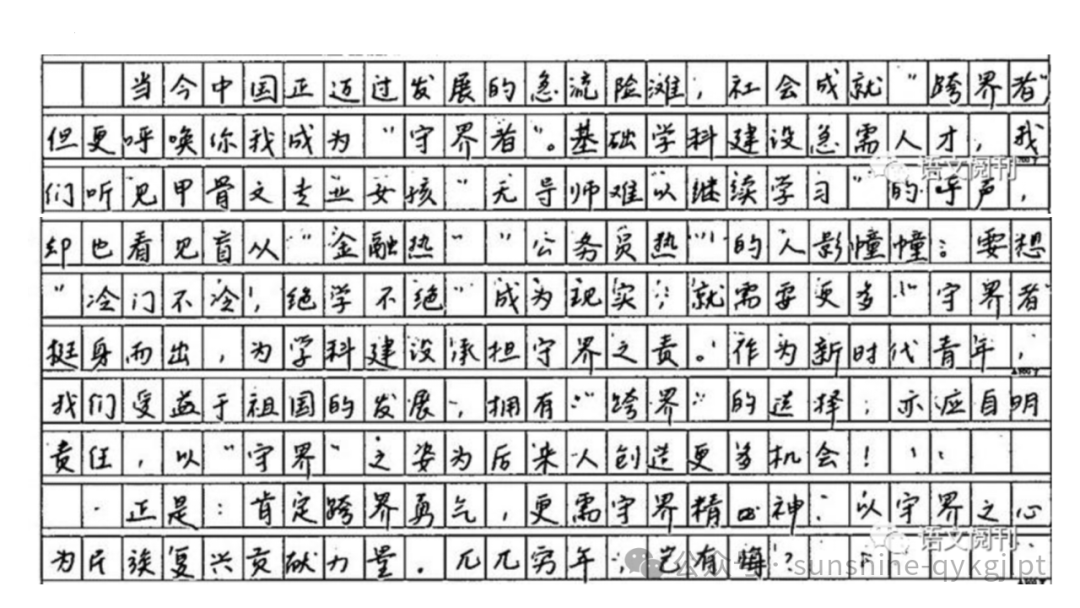 当今中国正迈过发展的急流险滩，社会成就“跨界者”，
但更呼唤你我成为“守界者”。基础学科建设急需人才，我
们听见甲骨文专业女孩“无导师难以继续学习”的呼声，
却也看见盲从“金融热”“公务员热”的人影幢幢；要想
“冷门不冷，绝学不绝”成为现实，就需要更多“守界者”
挺身而出，为学科建设承担守界之责。作为新时代青年，
我们受益于祖国的发展，拥有“跨界”的选择；亦应自明
责任，以“守界”之姿为后来人创造更多机会！
正是：肯定跨界勇气，更需守界精神；以守界之心
为民族复兴贡献力量。兀兀穷年，岂有悔？
语文阅刊
语文阅刊
公众号：sunshine-qykgj.pt